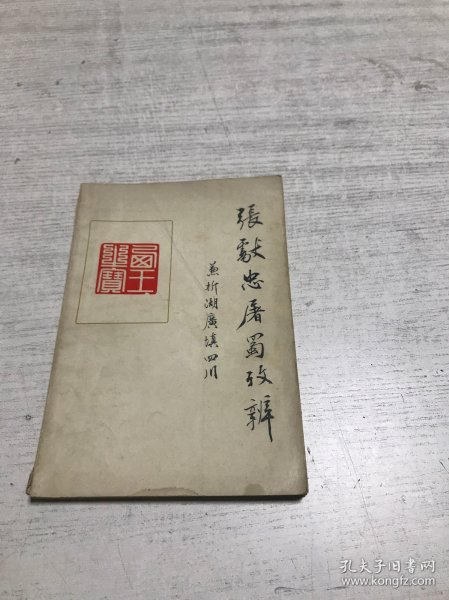 張獻忠屠蜀攷辨
兼析湖廣填四川
西王
之寶
孔夫子旧书网
www.kongfz.com